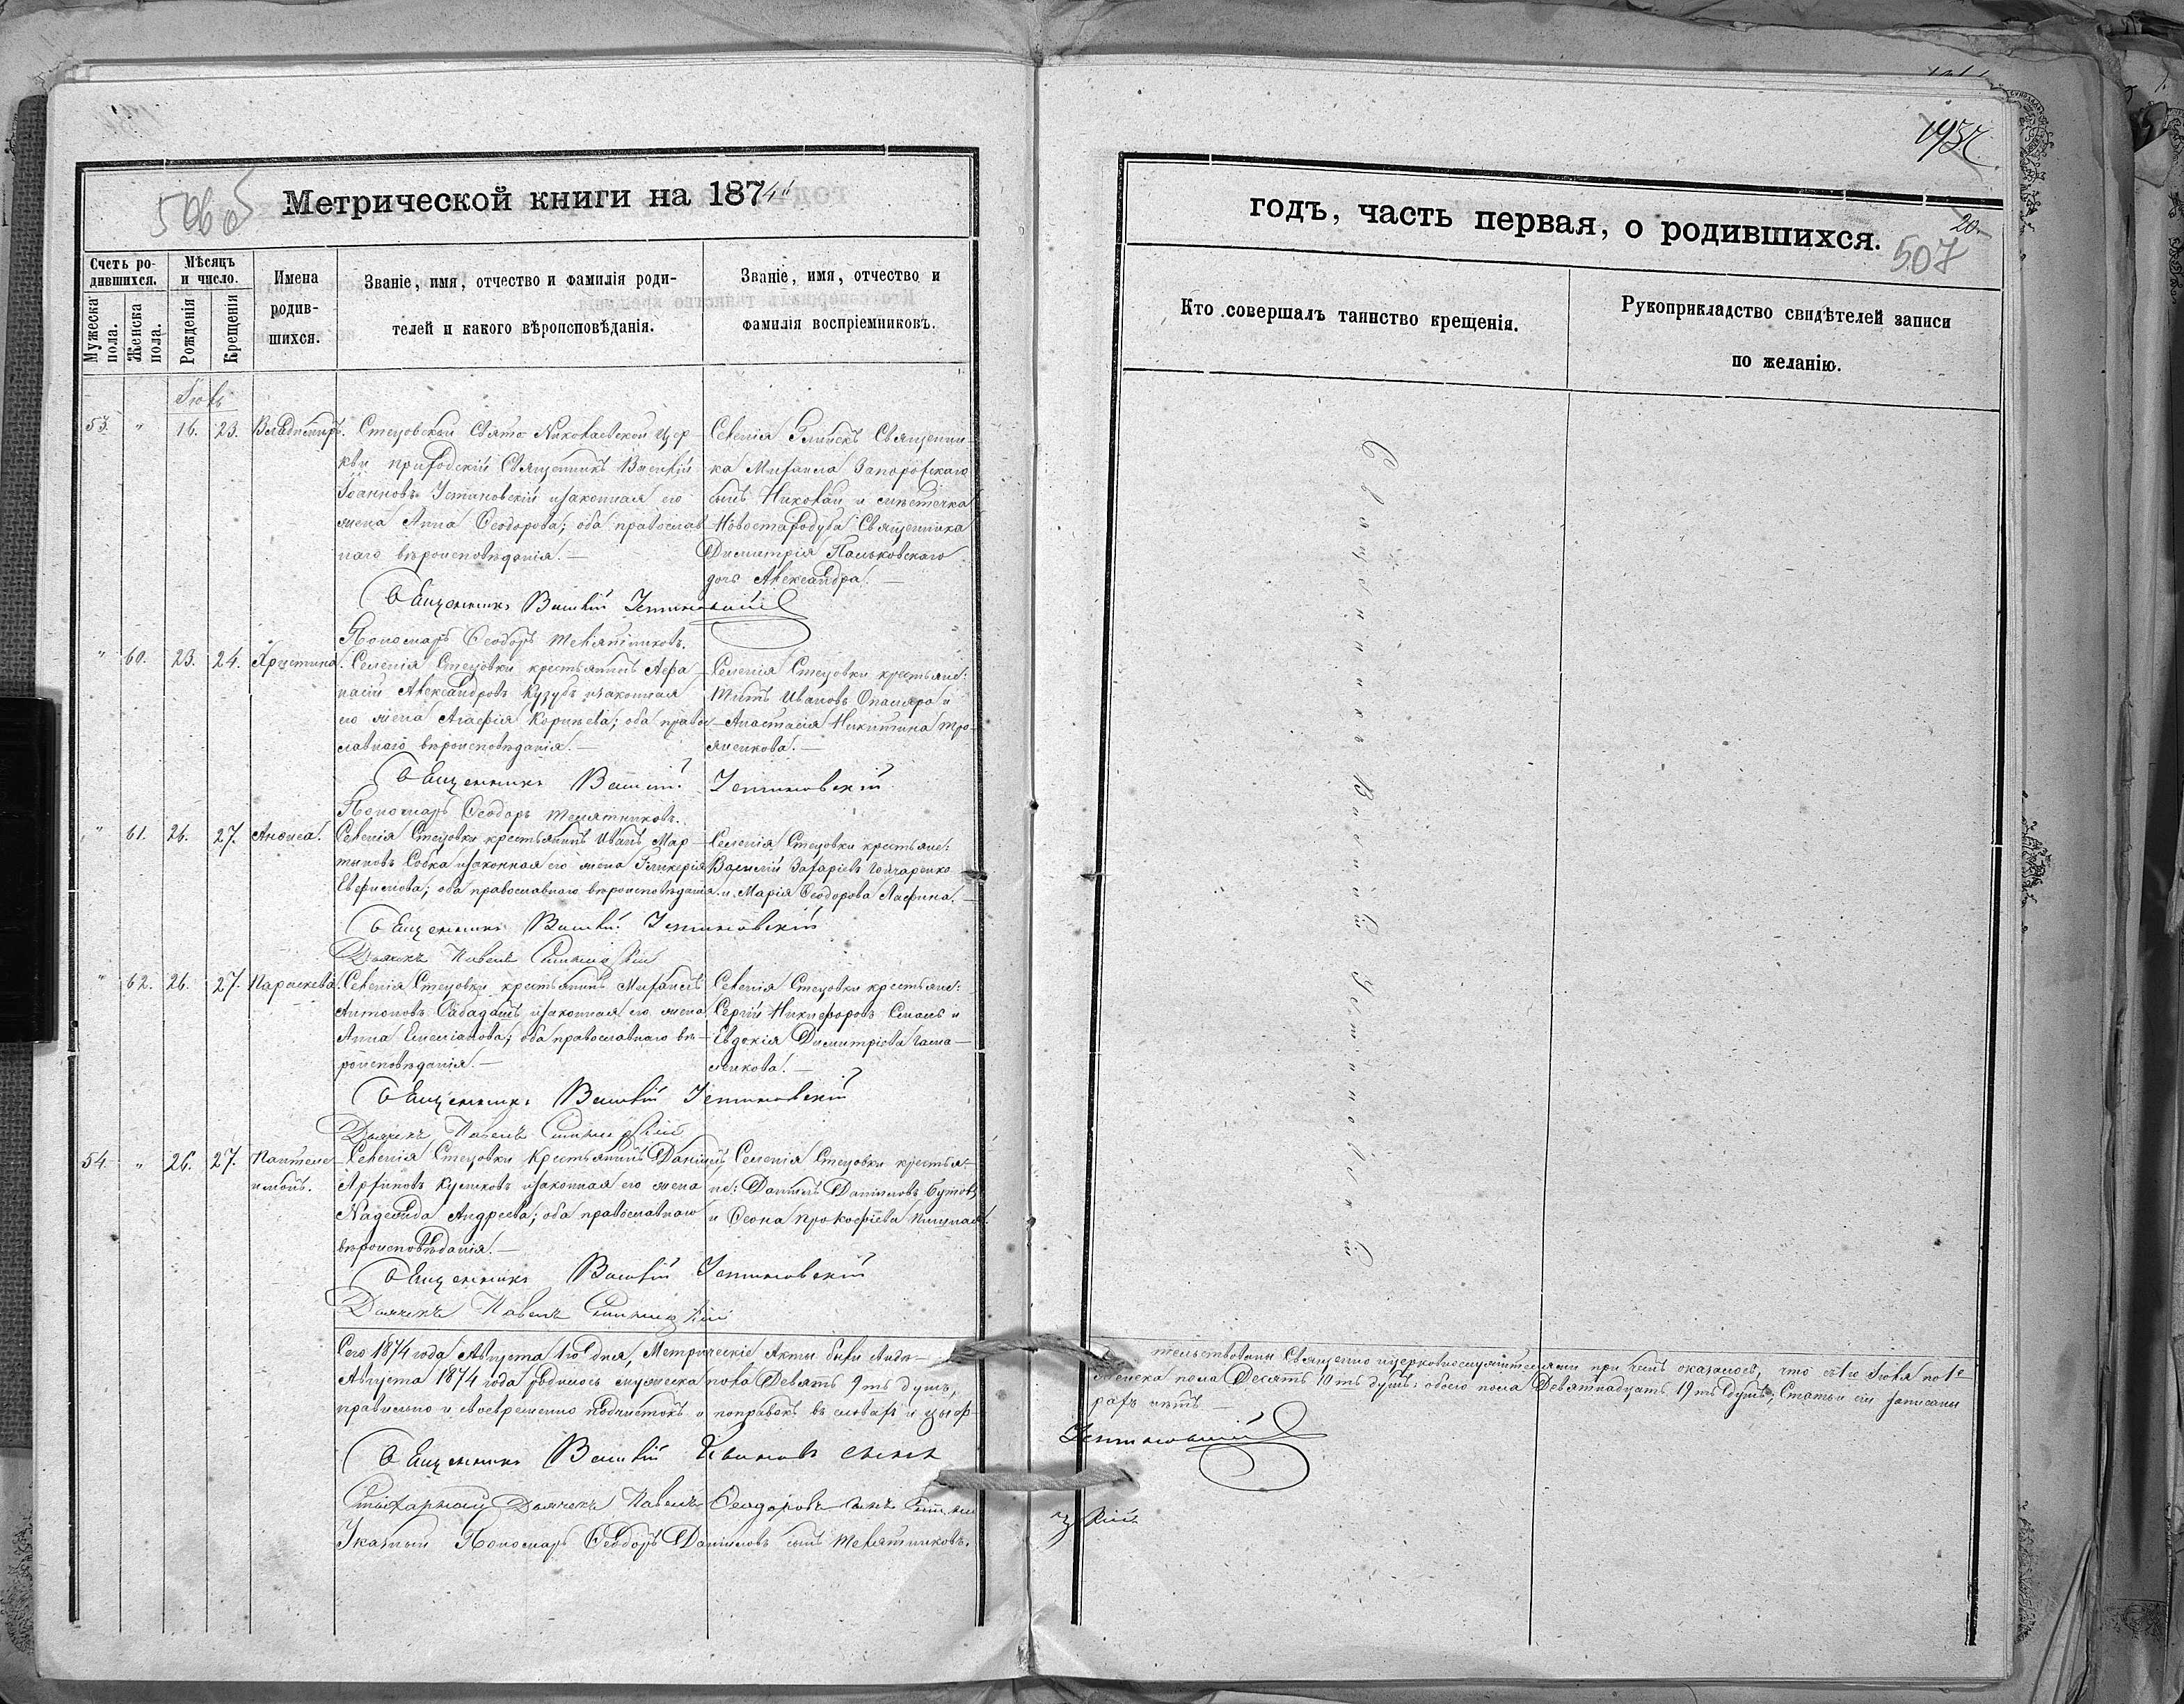 506 об
Метрической книги на 1874
Счетъ ро-
дившихся.
Мѣсяцъ
и число.
Мужеска
пола.
Женска
пола.
Рожденія
Крещенія
Имена
родив-
шихся.
Званіе, имя, отчество и фамилія роди-
телей и какого вѣроисповѣданія.
Званіе, имя, отчество и
фамилія воспріемниковъ.
Іюль
53. " 16. 23. Владиміръ.
Стецовской Свято Николаевской Цер-
кви приходскій Священникъ Василій
Іоанновъ Устиновскій и законная его
жена Анна Ѳеодорова; оба православ-
наго вѣроисповѣданія.—
Селенія Священни-
ка Михаила Запоровскаго
сынъ Николай и мѣстечка
Новостародуба Священника
Димитрія Паньковскаго
дочь Александра.—
Священникъ Василій Устиновскій
Пономарь Ѳеодоръ Телятниковъ.
" 60. 23. 24. Христина.
Селенія Стецовки крестьянинъ Афа-
насій Александровъ Кузубъ и законная
его жена Агафія Корнѣева; оба право-
славнаго вѣроисповѣданія.—
Селенія Стецовки крестьяне:
Титъ Ивановъ и
Анастасія Никитина Тро-
янкова.—
Священникъ Василій Устиновскій
Пономарь Ѳеодоръ Телятниковъ.
" 61. 26. 27. Анфиса.
Селенія Стецовки крестьянинъ Иванъ Мар-
тыновъ Собка и законная его жена Гликерія
Евфимова; оба православнаго вѣроисповѣданія.
Селенія Стецовки крестьяне:
Василій Захаріевъ Гончаренко
и Марія Ѳеодорова Лафина.—
Священникъ Василій Устиновскій
Дьячекъ Павелъ
" 62. 26. 27. Параскева.
Селенія Стецовки крестьянинъ Михаилъ
Антоновъ Сабадашъ и законная его жена
Анна Емеліанова; оба православнаго вѣ-
роисповѣданія.—
Селенія Стецовки крестьяне:
Сергій Никифоровъ и
Евдокія Димитріева
Священникъ Василій Устиновскій
Дьячекъ Павелъ
54. " 26. 27. Пантеле-
имонъ.
Селенія Стецовки крестьянинъ Даніилъ
Архиповъ Куликовъ и законная его жена
Надежда Андреева; оба православнаго
вѣроисповѣданія.—
Селенія Стецовки крестья-
не: Даніилъ Даніиловъ Бутовъ
и Ѳеона Прокофіева
Священникъ Василій Устиновскій
Дьячекъ Павелъ
Сего 1874 года Августа 1го дня, Метрическіе Акты были
Августа 1874 года родилось мужеска пола Девять 9ть душъ,
правильно и своевременно подчистокъ и поправокъ въ словахъ и цыф-
Священникъ Василій Ивановъ сынъ
Стихарный Дьячекъ Павелъ Ѳеодоровъ сынъ
Указный Пономарь Ѳеодоръ Даниловъ сынъ Телятниковъ.
20.
507
годъ, часть первая, о родившихся.
Кто совершалъ таинство крещенія.
Рукоприкладство свидѣтелей записи
по желанію.
Священникъ Василій Устиновскій
тельствованы Священно церковнослужителями при чемъ оказалось, что съ 1го Іюля по 1е
женска пола Десять 10ть душъ: обоего пола Девятнадцать 19ть душъ; Статьи сіи записаны
рахъ нѣтъ
Устиновскій